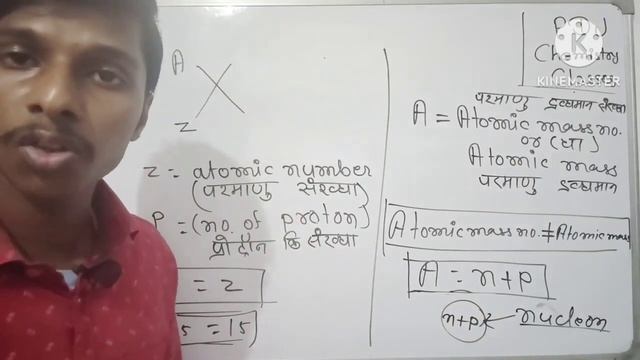 A
X
Z
Z = atomic number
(परमाणु संख्या)
P = (no. of proton)
प्रोटॉन कि संख्या
= Z
= 15
Chemistry
Classes
K
KINEMASTER
परमाणु द्रव्यमान संख्या
A = Atomic mass no.
or (या)
Atomic mass
परमाणु द्रव्यमान
Atomic mass no. ≠ Atomic mass
A = n+p
n+p ← nucleon